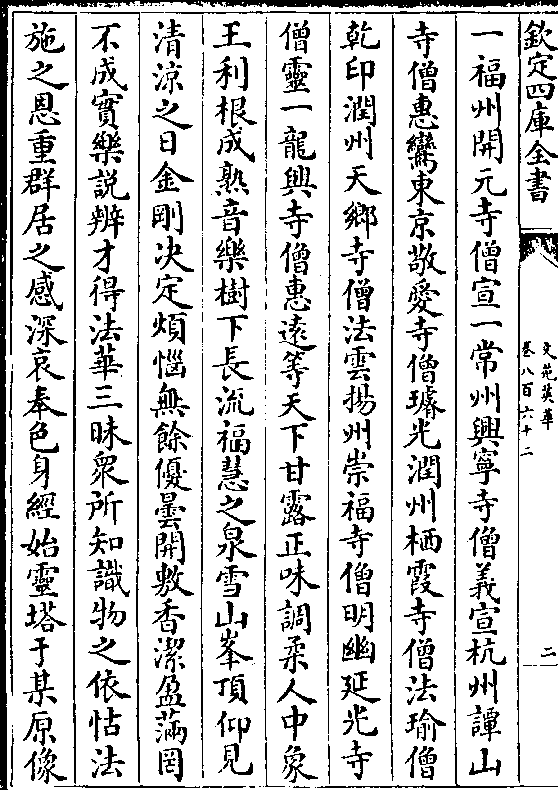 欽定四庫全書
文苑英華
卷八百六十二
二
一福州開元寺僧宣一常州興寧寺僧義宣杭州譚山
寺僧惠鸞東京敬愛寺僧璿光潤州栖霞寺僧法瑜僧
乾印潤州天鄉寺僧法雲揚州崇福寺僧明幽延光寺
僧靈一龍興寺僧惠遠等天下甘露正味調柔人中象
王利根成熟音樂樹下長流福慧之泉雪山峯頂仰見
清涼之日金剛決定煩惱無餘優曇開敷香潔盈滿罔
不成實樂説辨才得法華三昧衆所知識物之依怙法
施之恩重群居之感深哀奉色身經始靈塔于某原像